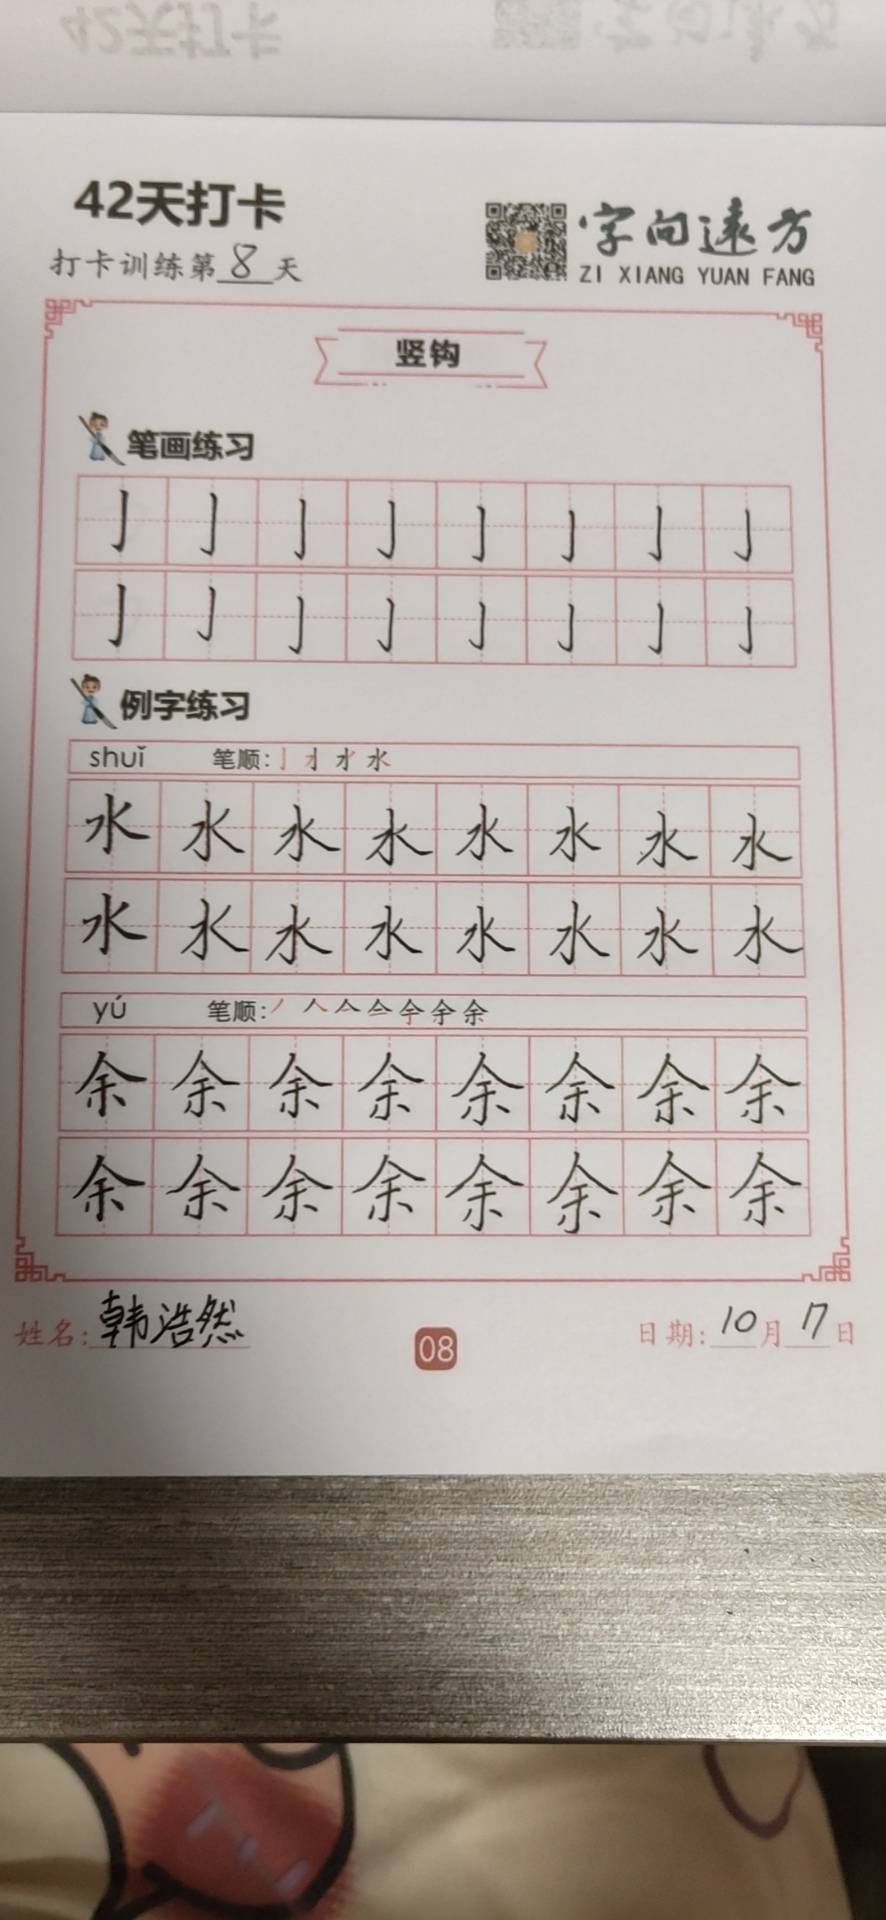 42天打卡
字向遠方
ZI XIANG YUAN FANG
打卡训练第8天
竖钩
笔画练习
亅亅亅亅亅亅亅亅
亅亅亅亅亅亅亅亅
例字练习
shuǐ 笔顺: 水
水水水水水水水水
水水水水水水水水
yú 笔顺: 余
余余余余余余余余
余余余余余余余余
姓名: 韩浩然
08
日期: 10月17日